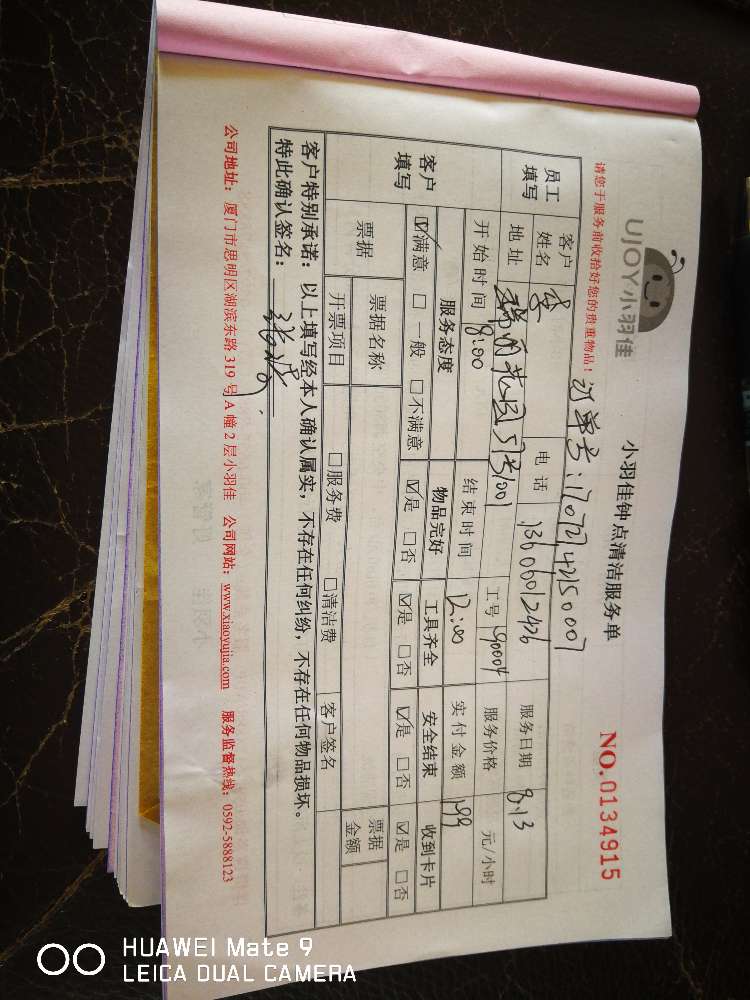 UJOY小羽佳
小羽佳钟点清洁服务单
NO.0134915
请您于服务前收拾好您的贵重物品!
订单号:17072142150007
员工填写
客户姓名 电话 13600012426 服务日期 8.13
地址 57号1001 工号 90004 服务价格 元/小时
开始时间 8:00 结束时间 12:00 实付金额 199
客户填写
服务态度 物品完好 工具齐全 安全结束 收到卡片
☑满意 □一般 □不满意 ☑是 □否 ☑是 □否 ☑是 □否 ☑是 □否
票据 票据名称 票据金额
开票项目 □服务费 □清洁费 客户签名
客户特别承诺:以上填写经本人确认属实,不存在任何纠纷,不存在任何物品损坏。
特此确认签名:
公司地址:厦门市思明区湖滨东路319号A幢2层小羽佳 公司网站:www.xiaoyujia.com 服务监督热线:0592-5888123
HUAWEI Mate 9
LEICA DUAL CAMERA